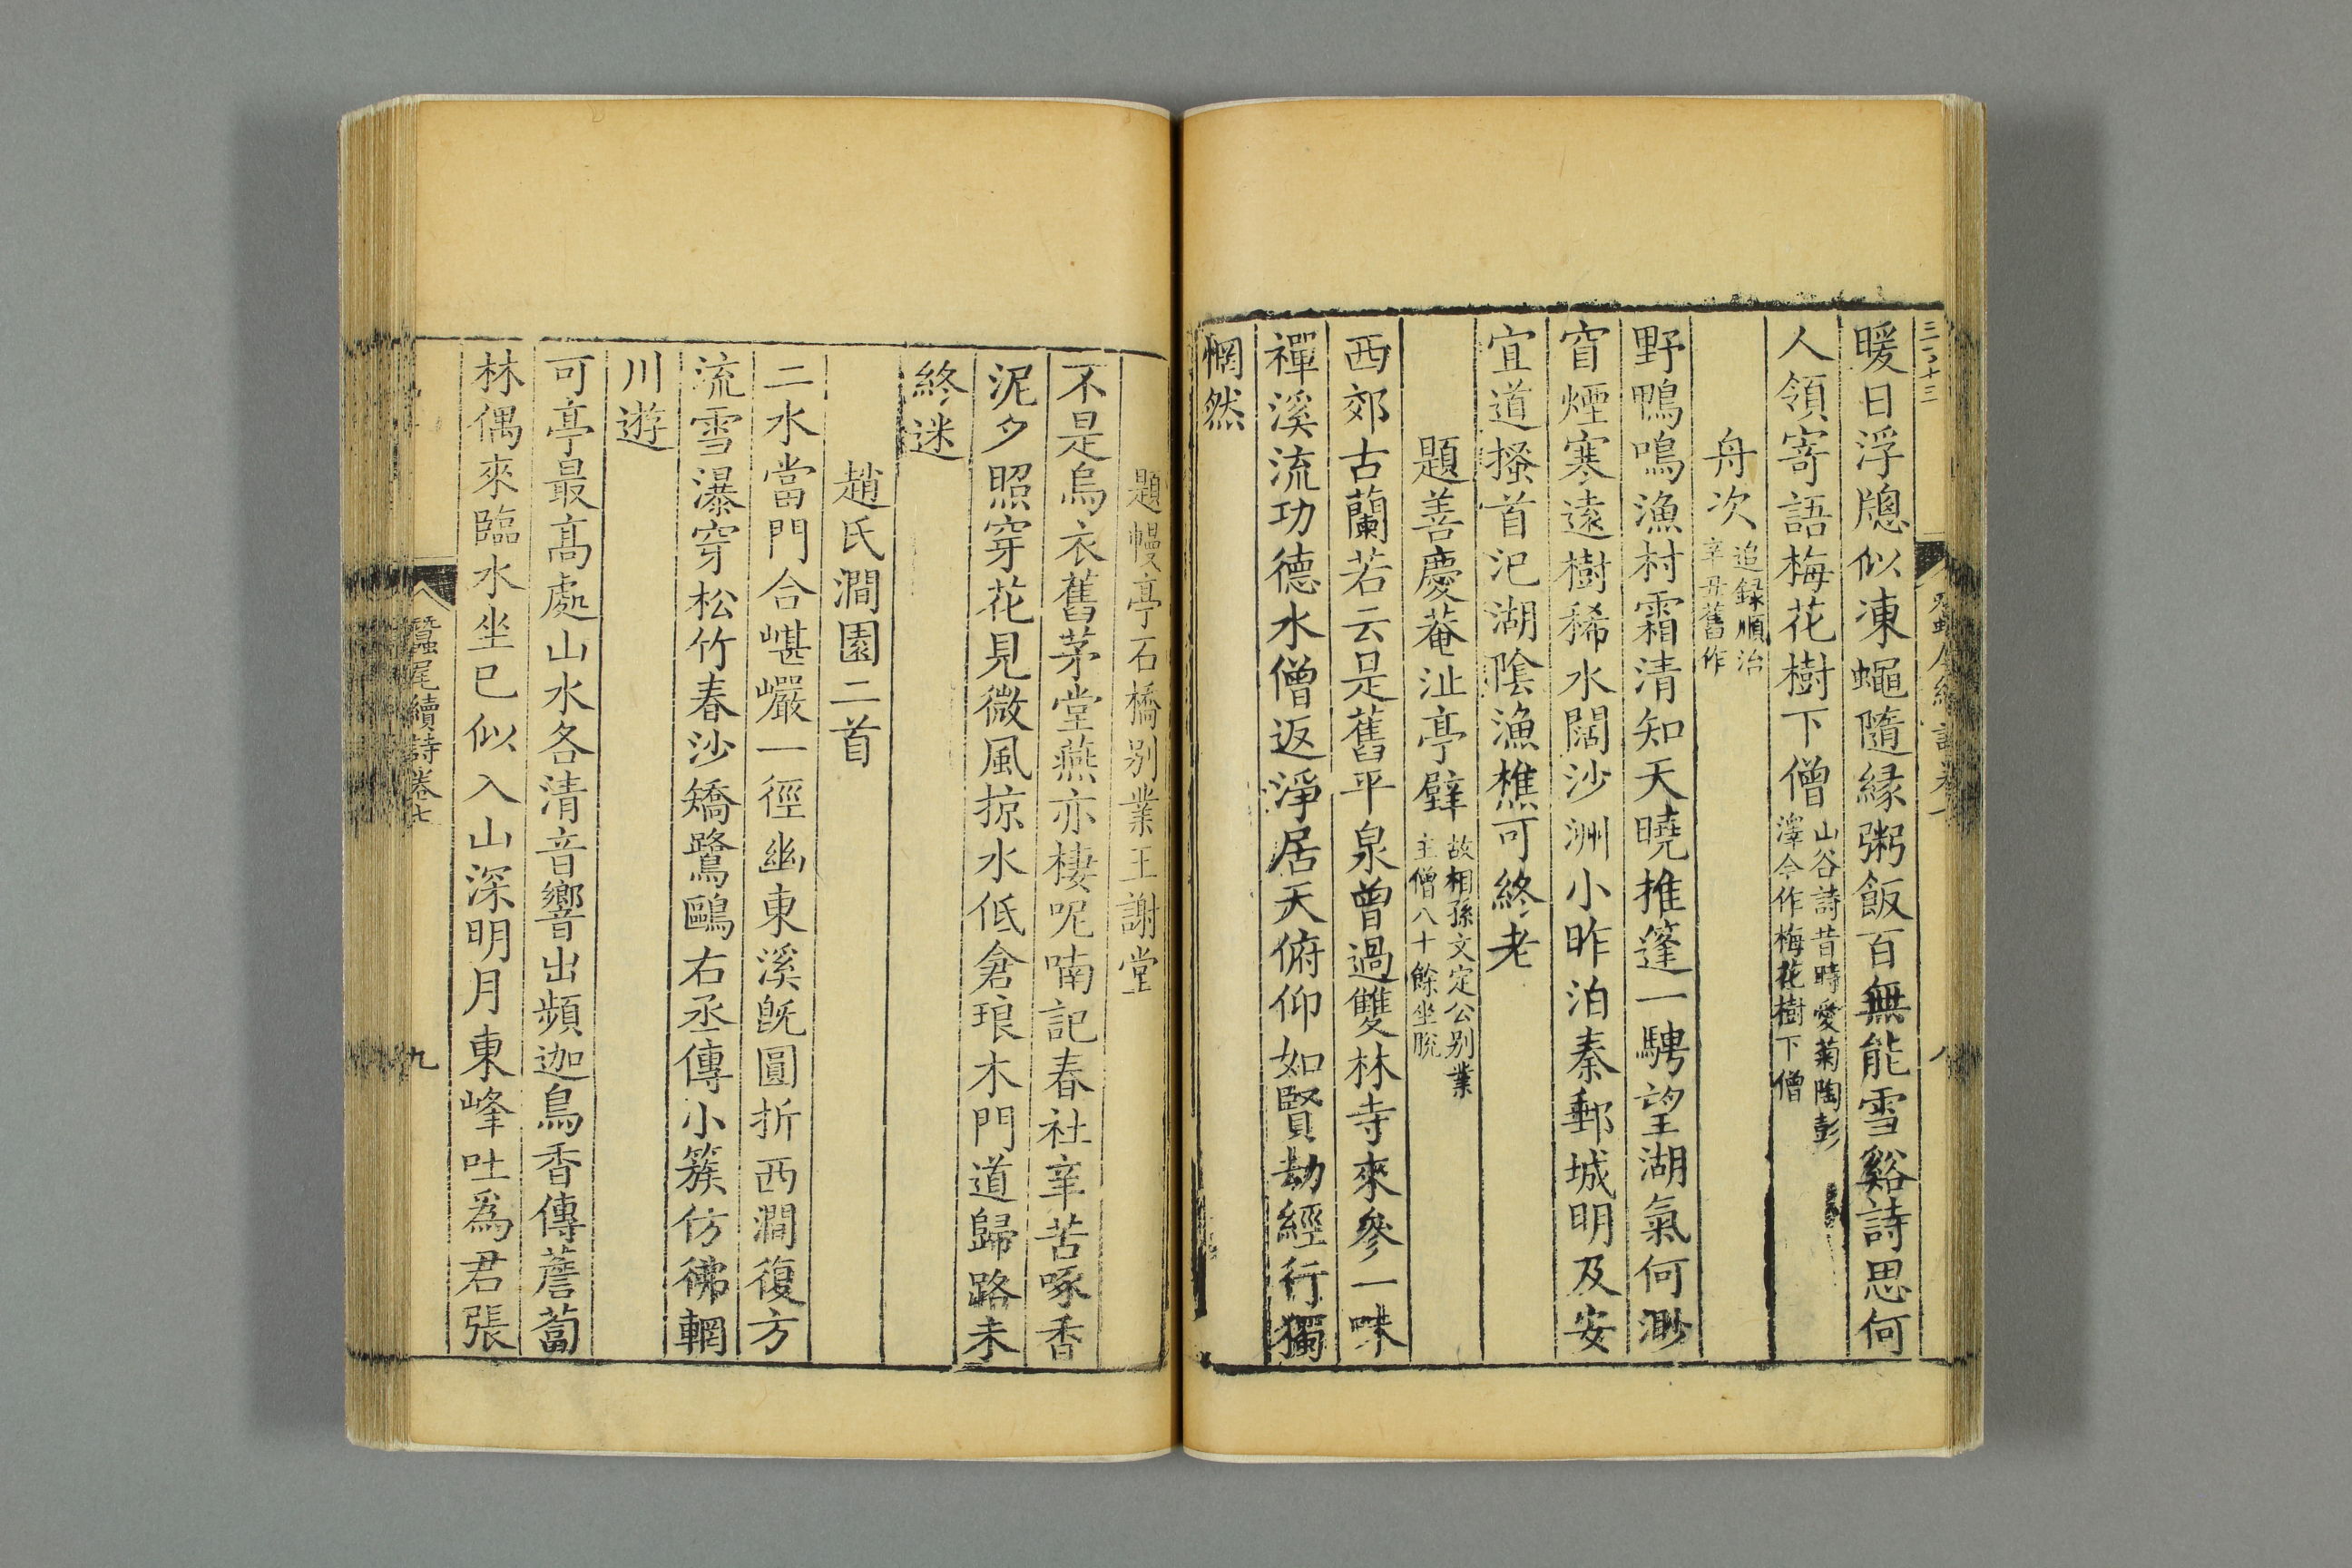 暖日浮牕似凍蠅隨緣粥飯百無能雪谿詩思何
人領寄語梅花樹下僧山谷詩昔時愛菊陶彭
澤今作梅花樹下僧
舟次追録順治
辛丑舊作
野鴨鳴漁村霜清知天曉推篷一騁望湖氣何渺
窅煙寒遠樹稀水闊沙洲小昨泊秦郵城明及安
宜道搔首汜湖陰漁樵可終老
題善慶菴沚亭壁故相孫文定公别業
主僧八十餘坐脫
西郊古蘭若云是舊平泉曾過雙林寺來參一味
禪溪流功德水僧返淨居天俯仰如賢劫經行獨
惘然
題幔亭石橋别業王謝堂
不是烏衣舊茅堂燕亦棲呢喃記春社辛苦啄香
泥夕照穿花見微風掠水低倉琅木門道歸路未
終迷
趙氏澗園二首
二水當門合嵁巖一徑幽東溪旣圓折西澗復方
流雪瀑穿松竹春沙矯鷺鷗右丞傳小簇仿彿輞
川遊
可亭最高處山水各清音響出頻迦鳥香傳薝蔔
林偶來臨水坐已似入山深明月東峰吐爲君張
蠶尾續詩卷七
九